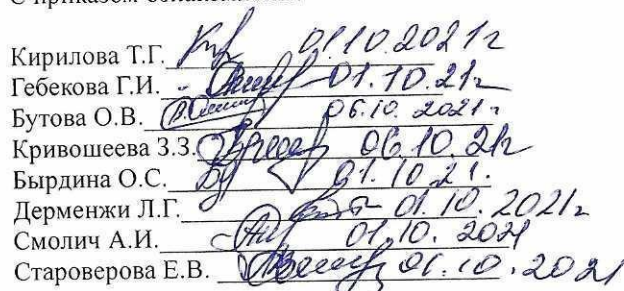 Кирилова Т.Г. 01.10.2021г
Гебекова Г.И. 01.10.21г
Бутова О.В. 06.10.2021г
Кривошеева З.З. 06.10.21г
Бырдина О.С. 01.10.21.
Дерменжи Л.Г. 01.10.2021г
Смолич А.И. 01.10.2021
Староверова Е.В. 01.10.2021